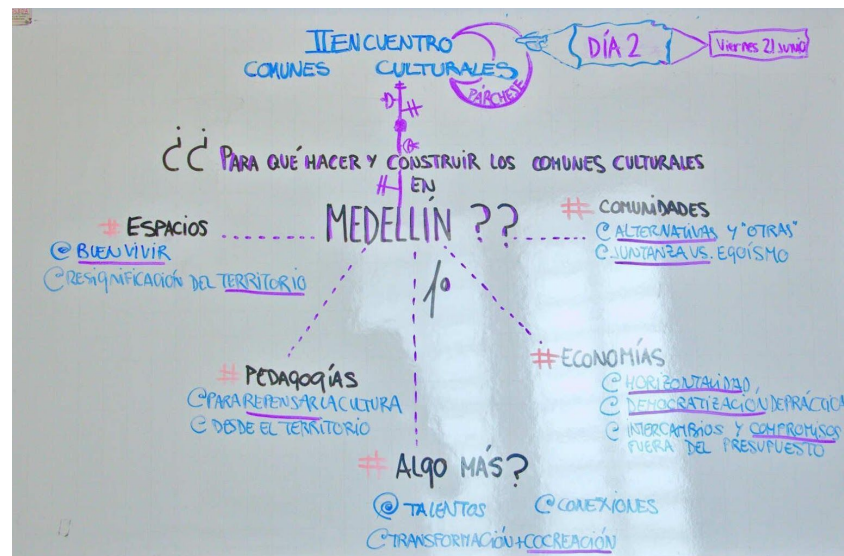 II ENCUENTRO
COMUNES CULTURALES
PÁRCHESE
DÍA 2
Viernes 21 Junio
¿¿ PARA QUÉ HACER Y CONSTRUIR LOS COMUNES CULTURALES
EN
MEDELLÍN ??
1º
# ESPACIOS
@ BUEN VIVIR
@ RESIGNIFICACIÓN DEL TERRITORIO
# COMUNIDADES
@ ALTERNATIVAS Y "OTRAS"
@ JUNTANZA VS. EGOÍSMO
# PEDAGOGÍAS
@ PARA REPENSAR LA CULTURA
@ DESDE EL TERRITORIO
# ECONOMÍAS
@ HORIZONTALIDAD,
@ DEMOCRATIZACIÓN DE
@ INTERCAMBIOS Y COMPROMISOS
FUERA DEL PRESUPUESTO
# ALGO MÁS?
@ TALENTOS @ CONEXIONES
@ TRANSFORMACIÓN + COCREACIÓN